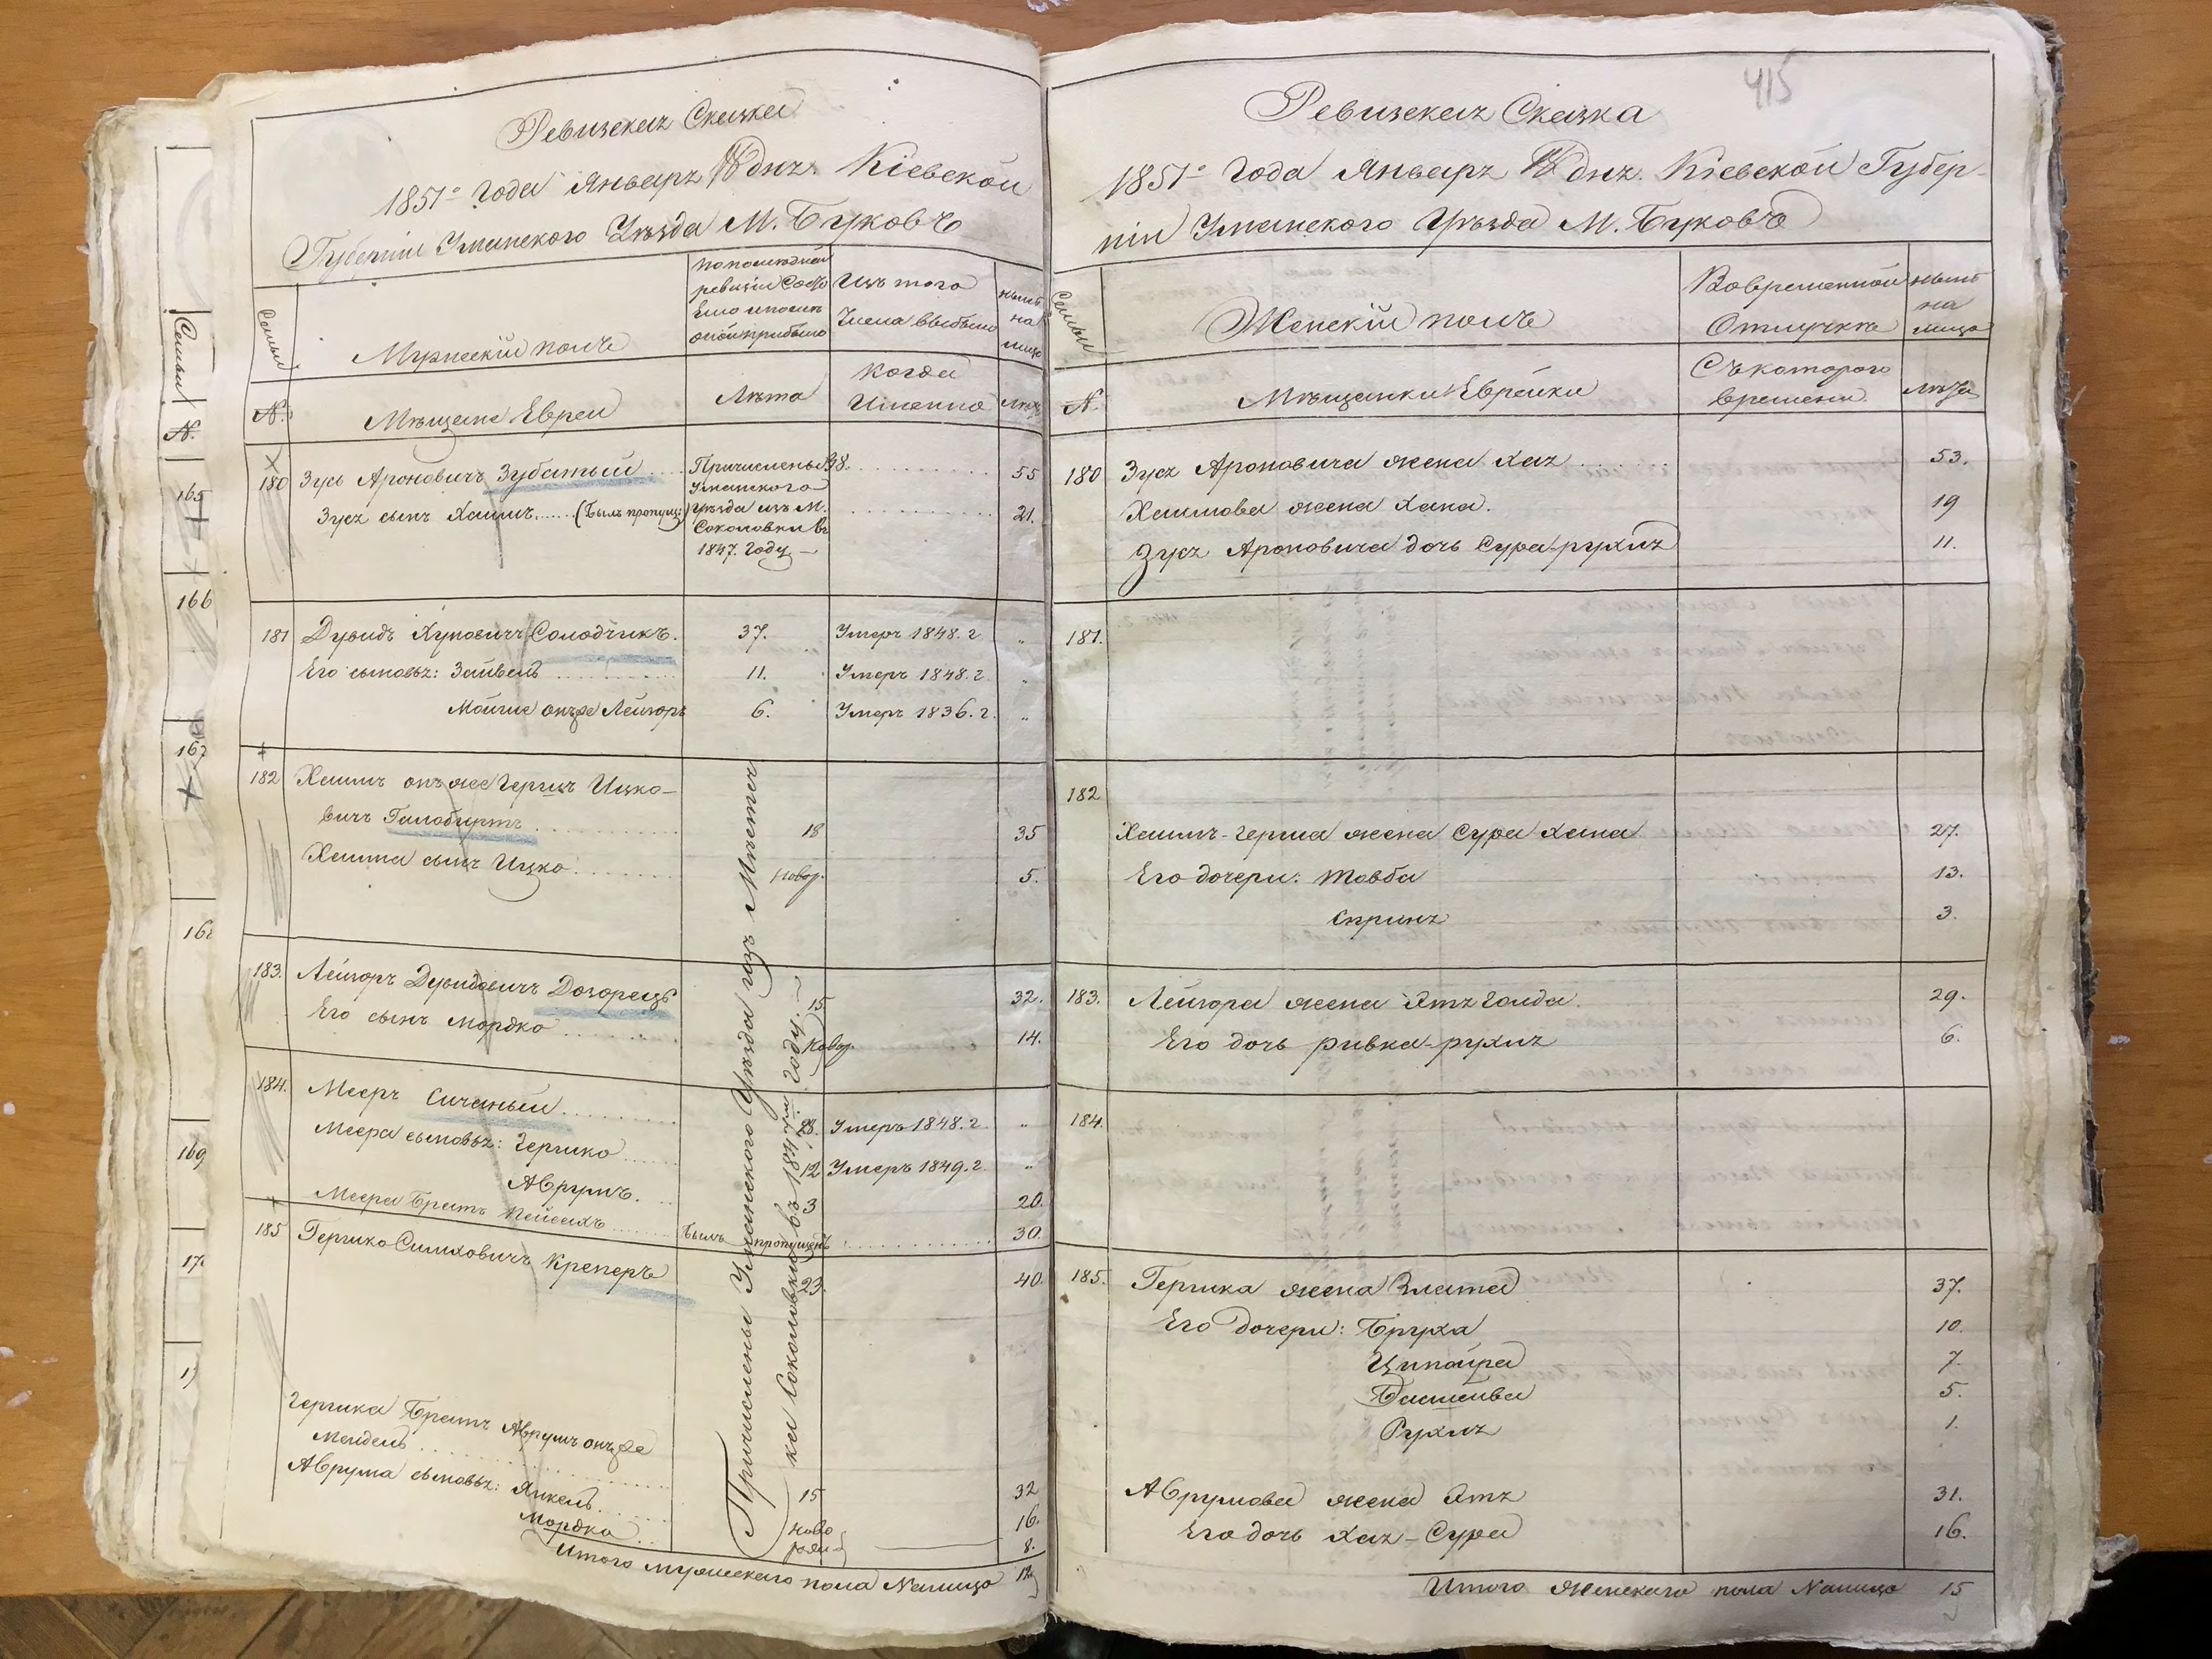 165
166
167
169
Семьи
№.
Ревизская Сказка
1851го Года Января 18 дня. Кіевской
Губерніи Уманского Уѣзда М. Буковъ
Семьи
Мужескій полъ
По последней ревизіи Состояло и после оной прибыло
Изъ того Числа выбыло
ныне на лицо
№.
Мѣщане Евреи
Лѣта
Когда Именно
Лѣта
180 Зусь Ароновичъ Зубатый 55
Зуся сынъ Хаимъ (Былъ пропущ:) 21.
Причислены Уманского уѣзда изъ М. Соколовки въ 1847. Году
181 Дувидъ Солодчикъ. 37. Умеръ 1848. г. „
Его сыновья: Зайвель 11. Умеръ 1848. г. „
Мойше онъже Лейзоръ 6. Умеръ 1836. г. „
182 Хаимъ онъ же Гершъ Ицко-
вичъ Гилобиртъ 18 35
Хаима сынъ Ицко новор. 5.
183. Лейзоръ Дувидовичъ 15 32.
Его сынъ Мордко новор. 14.
184. Мееръ Сичаный 28. Умеръ 1848. г. „
Меера сыновья: Гершко 12 Умеръ 1849. г. „
Аврумъ. 3 20.
Меера братъ Пейсахъ былъ пропущенъ 30.
185 Гершко Симховичъ Креперъ 23. 40.
Гершка братъ Аврумъ онъже
Мендель 15 32
Аврума сыновья: Янкель. ново 16.
Мордко рожд 8.
Причислены Уманского Уѣзда изъ Местеч
ка Соколовки въ 1847м. году.
Итого мужескаго пола Налицо
415
Ревизская Сказка
1851го Года Января 18 дня. Кіевской Губер-
ніи Уманского Уѣзда М. Буковъ
Семьи
Женскій полъ
Во временной Отлучке
ныне на лицо
№.
Мѣщанки Еврейки
Съ которого времени.
лѣта
180 Зуся Ароновича жена Хая 53.
Хаимова жена Хана. 19
Зуся Ароновича дочь Сура-рухля 11.
181.
182
Хаимъ-Герша жена Сура Хана 27.
Его дочери: Товба 13.
Сприня 3.
183. Лейзора жена Этя Голда. 29.
Его дочь ривка-рухля 6.
184.
185. Гершка жена Злата 37.
Его дочери: Бруха 10.
Ципойра 7.
Басшива 5.
Рухля 1.
Аврумова жена Этя 31.
Его дочь Хая-Сура 16.
Итого Женскаго пола Налицо 15